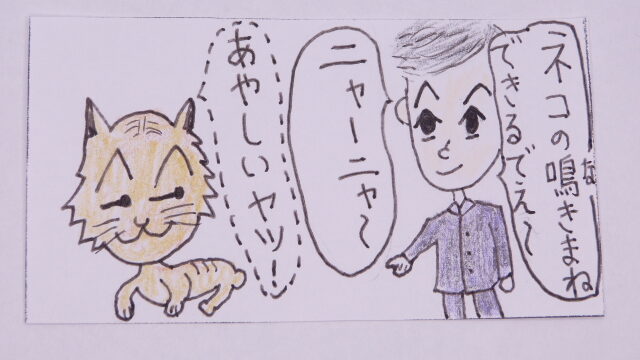 ネコの鳴きまね
できるでえ〜
ニャーニャ〜
あやしいヤツ!